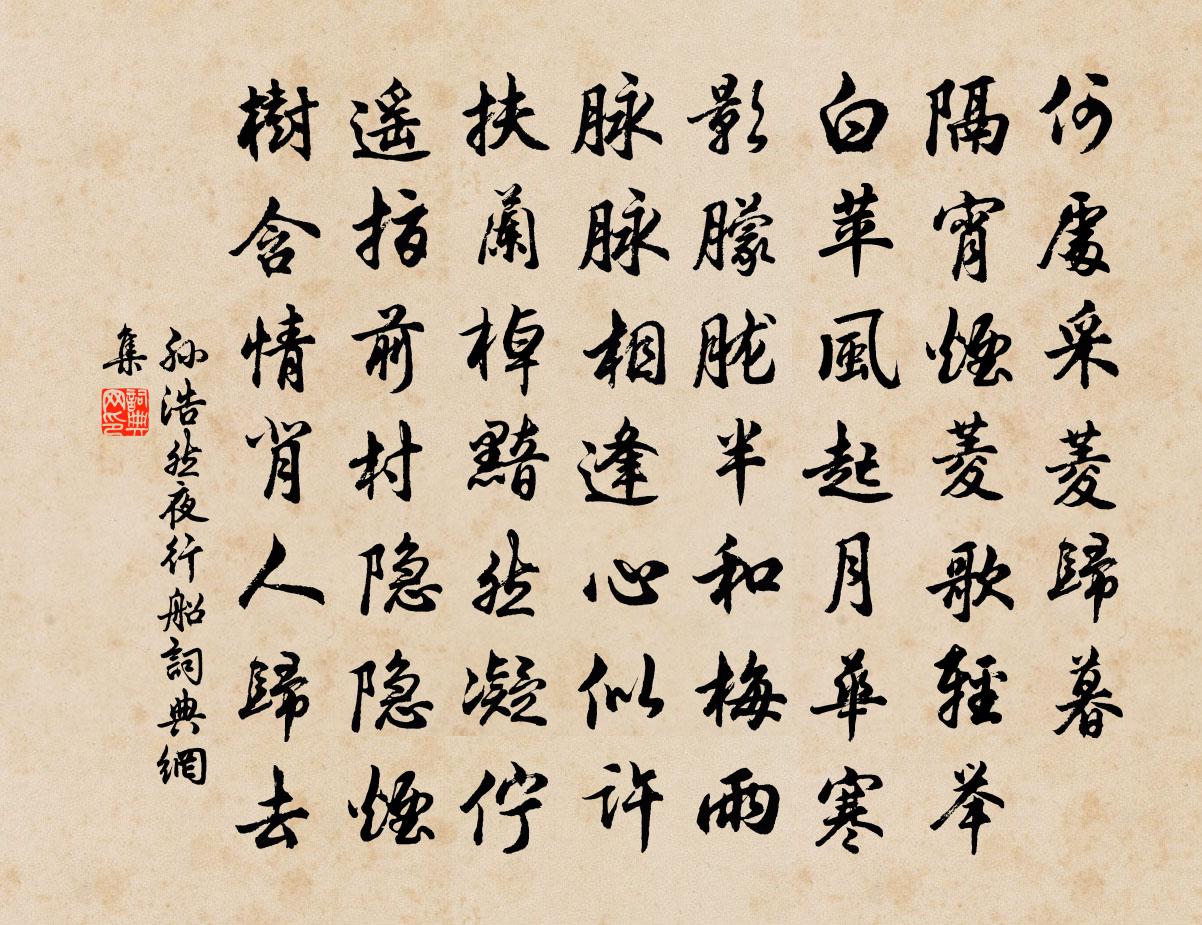 何處采菱歸暮
隔宵煙菱歌輕举
白苹風起月華寒
影朦胧半和梅雨
脉脉相逢心似許
扶蘭棹黯然凝佇
遥指前村隐隐煙
樹含情背人歸去
孙浩然夜行船詞典網
集
詞典網印